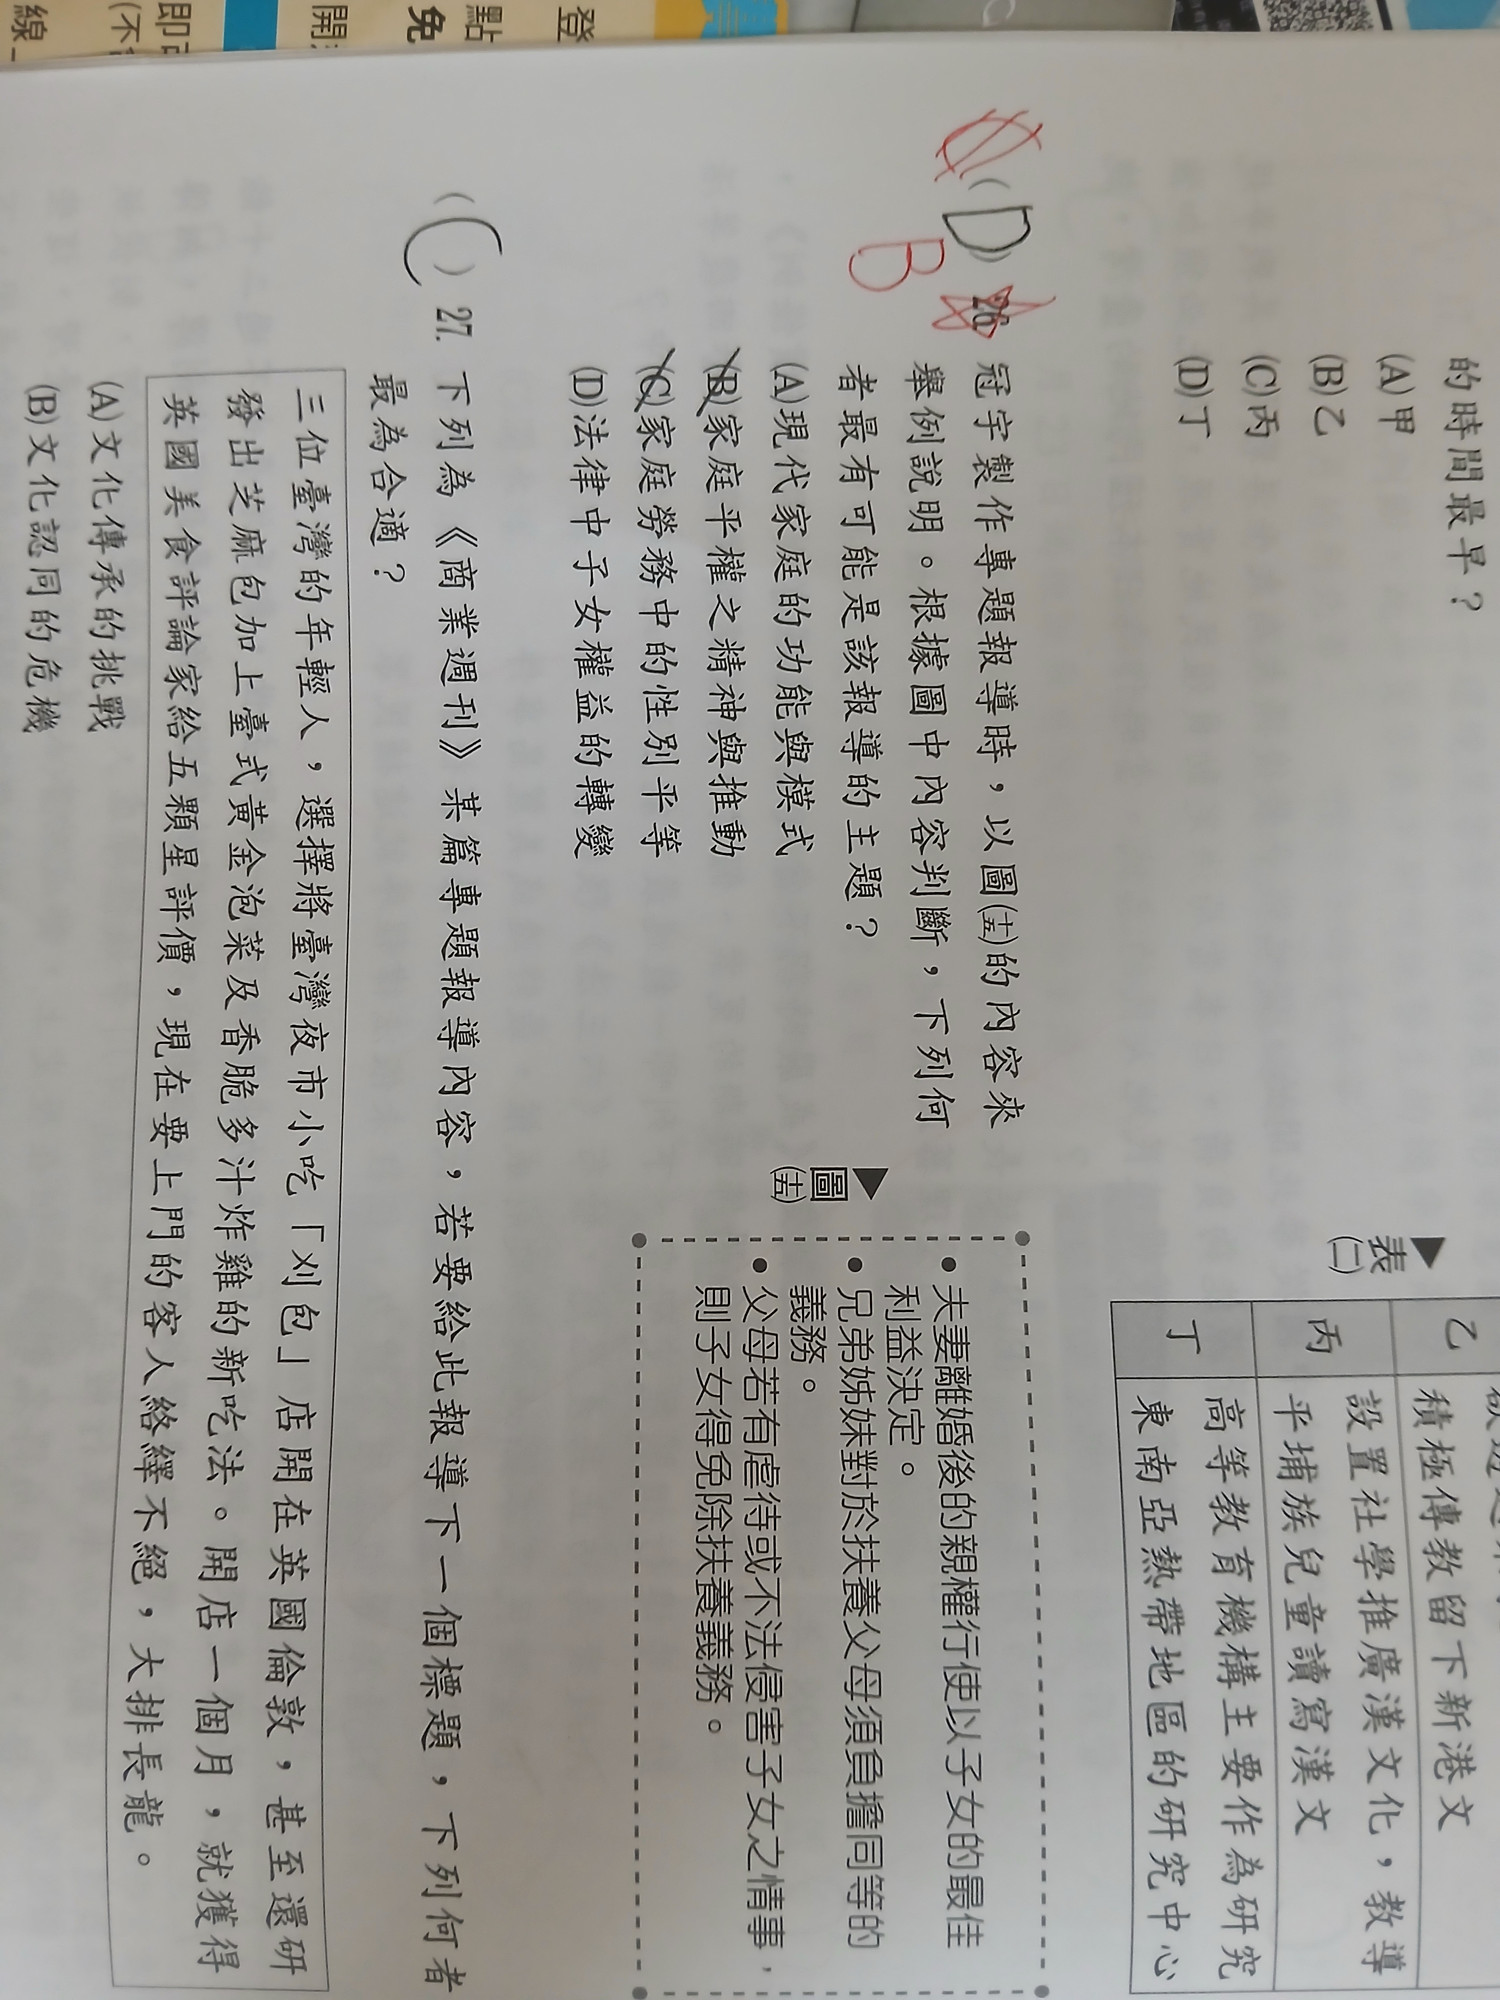 的時間最早？
(A)甲
(B)乙
(C)丙
(D)丁
▲表(二)
乙
積極傳教留下新港文
丙
設置社學推廣漢文化，教導
平埔族兒童讀寫漢文
丁
高等教育機構主要作為研究
東南亞熱帶地區的研究中心
(D) 26.
B
冠宇製作專題報導時，以圖(十五)的內容來
舉例說明。根據圖中內容判斷，下列何
者最有可能是該報導的主題？
(A)現代家庭的功能與模式
(B)家庭平權之精神與推動
(C)家庭勞務中的性別平等
(D)法律中子女權益的轉變
▲圖(十五)
•夫妻離婚後的親權行使以子女的最佳
利益決定。
•兄弟姊妹對於扶養父母須負擔同等的
義務。
•父母若有虐待或不法侵害子女之情事，
則子女得免除扶養義務。
( ) 27. 下列為《商業週刊》某篇專題報導內容，若要給此報導下一個標題，下列何者
最為合適？
三位臺灣的年輕人，選擇將臺灣夜市小吃「刈包」店開在英國倫敦，甚至還研
發出芝麻包加上臺式黃金泡菜及香脆多汁炸雞的新吃法。開店一個月，就獲得
英國美食評論家給五顆星評價，現在要上門的客人絡繹不絕，大排長龍。
(A)文化傳承的挑戰
(B)文化認同的危機
登
點
免
開
即
線